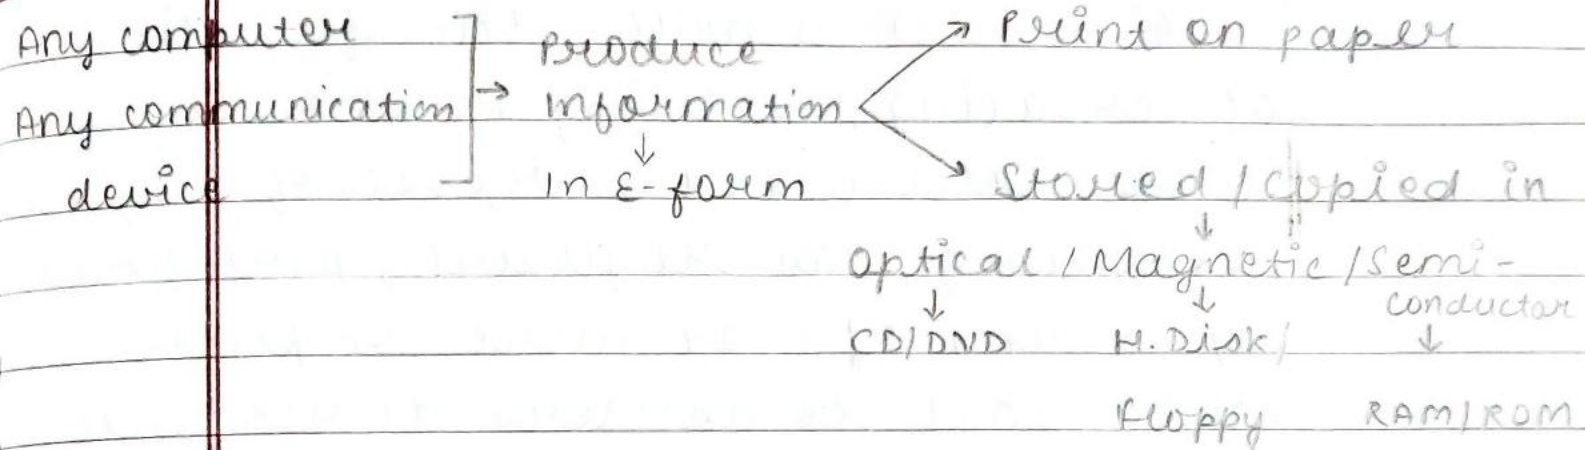 Any computer
Any communication
device
→ Produce
information
↓
In E-form
Print on paper
Stored / Copied in
↓
Optical / Magnetic / Semi-
conductor
↓ ↓ ↓
CD/DVD H. Disk/ RAM/ROM
Floppy